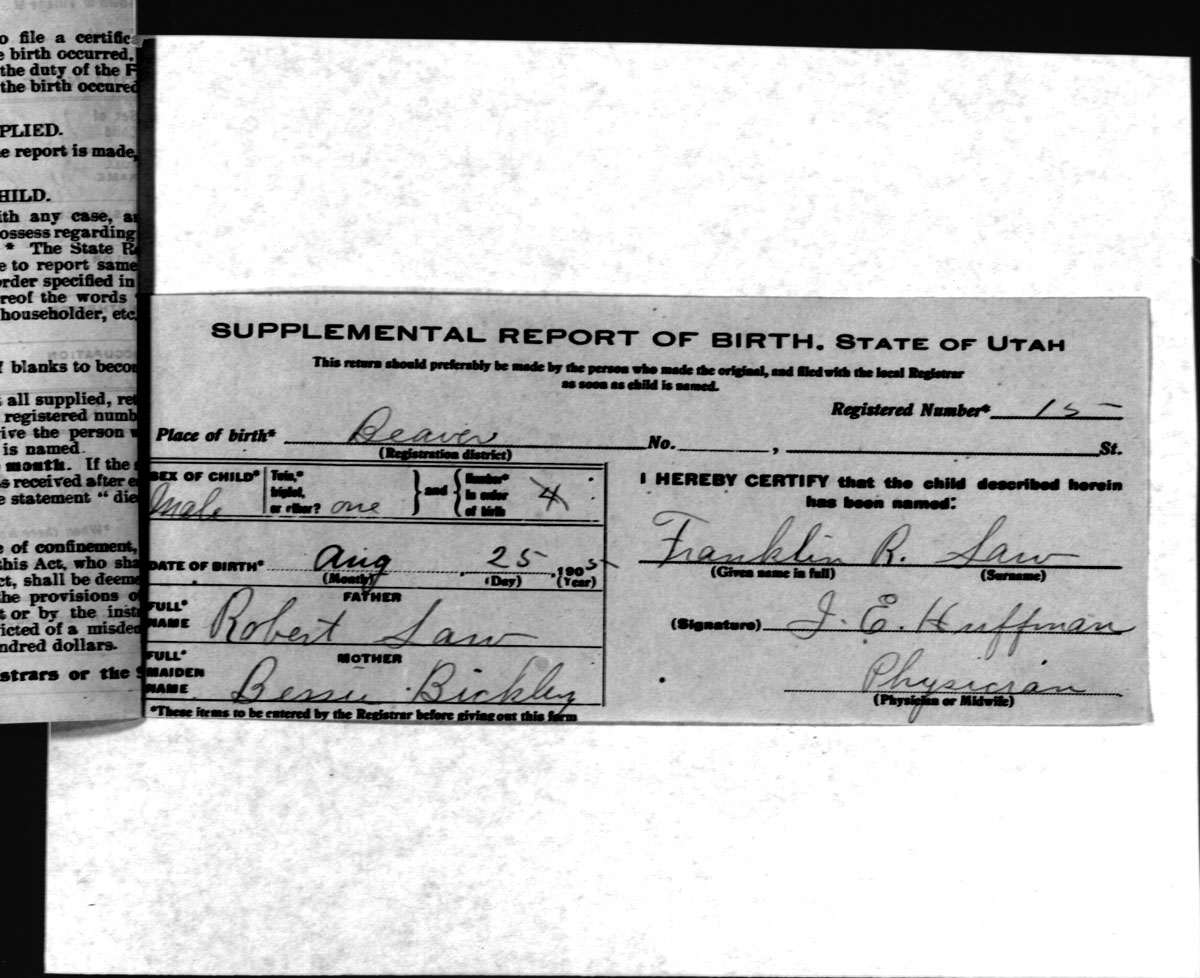 o file a certific
e birth occurred,
the duty of the F
the birth occured
PLIED.
e report is made,
HILD.
ith any case, a
ossess regarding
* The State R
e to report same
rder specified in
reof the words
householder, etc.
f blanks to becom
all supplied, ret
registered numb
ive the person
is named.
month. If the
s received after e
e statement " die
e of confinement,
this Act, who sha
ct, shall be deeme
the provisions o
t or by the inst
icted of a misde
ndred dollars.
strars or the S
SUPPLEMENTAL REPORT OF BIRTH. STATE OF UTAH
This return should preferably be made by the person who made the original, and filed with the local Registrar
as soon as child is named.
Registered Number* 15
Place of birth* Beaver No. , St.
(Registration district)
SEX OF CHILD* Male
Twin,* triplet, or other? one } and { Number* in order of birth 4
DATE OF BIRTH* Aug 25 1905
(Month) (Day) (Year)
FATHER
FULL* NAME Robert Law
MOTHER
FULL* MAIDEN NAME Bessie Bickley
*These items to be entered by the Registrar before giving out this form
I HEREBY CERTIFY that the child described herein
has been named:
Franklin R. Law
(Given name in full) (Surname)
(Signature) J. E. Huffman
Physician
(Physician or Midwife)